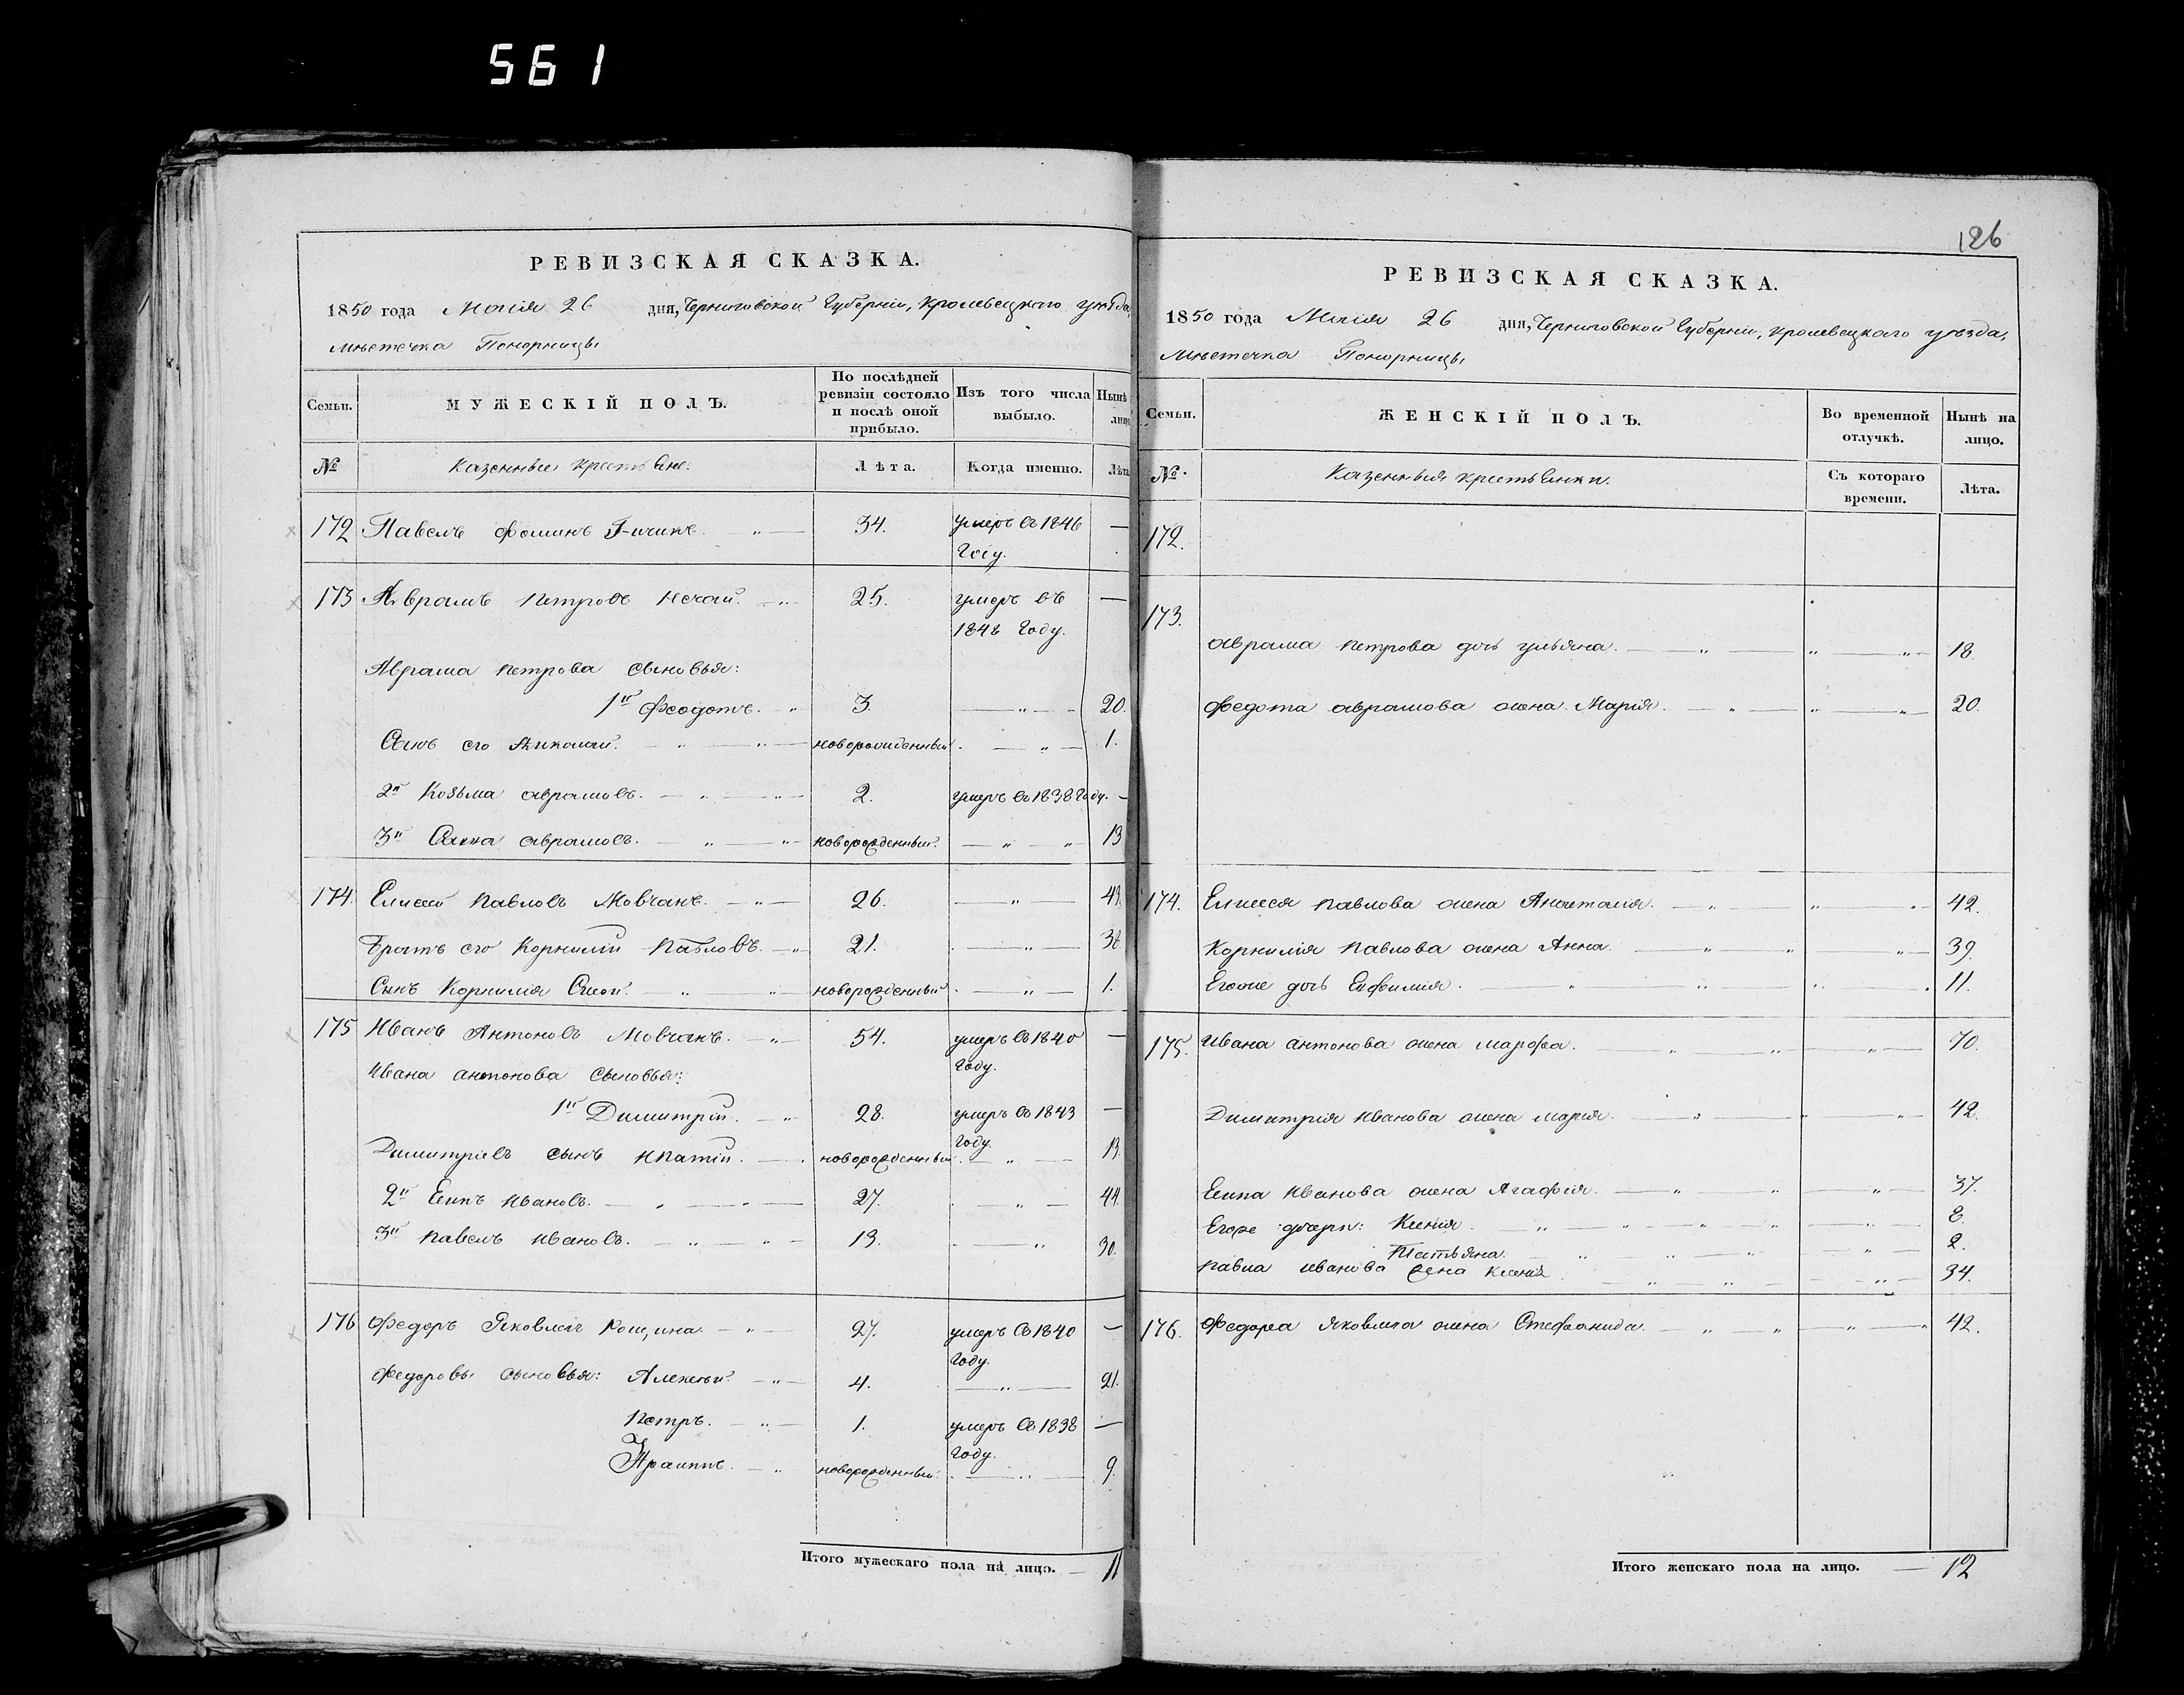 561
РЕВИЗСКАЯ СКАЗКА.
1850 года Маія 26 дня, Черниговской Губерніи, Кролевецкаго уѣзда,
мѣстечка Понорницы
Семьи. МУЖЕСКІЙ ПОЛЪ. По послѣдней ревизіи состояло и послѣ оной прибыло. Изъ того числа выбыло. Нынѣ
№ Казенные крестьяне. Лѣта. Когда именно. Лѣта
172 Павелъ Фоминъ 34. умеръ въ 1846 —
Году.
173 Аврамъ Петровъ Нечай. — „ — 25. умеръ въ —
1848 Году.
Аврама Петрова сыновья:
1й Феодотъ. — „ 3. — „ — 20.
Сынъ его Николай. — „ — „ — новорожденный. — „ — 1.
2й Козьма аврамовъ. — „ — „ — 2. умеръ въ 1838 Году. —
3й Савка аврамовъ. — „ — „ — новорожденный. — „ — „ — 13
174. Елисей Павловъ Мовчанъ. — „ — 26. — „ —
Братъ его Корнилій Павловъ. — „ 21. — „ —
Сынъ Корнилія — „ — „ — новорожденный. — „ — 1.
175 Иванъ Антоновъ Мовчанъ. — „ — 54. умеръ въ 1840 —
Году.
Ивана антонова сыновья:
1й Димитрій. — „ 28. умеръ въ 1843 —
Году.
Димитріевъ сынъ Ипатій. — новорожденный. — „ — 13.
2й Есипъ Ивановъ. — „ — „ — 27. — „ — 44.
3й Павелъ Ивановъ. — „ — „ — 13. — „ 30.
176 Федоръ Яковлевъ Рощина. — „ — 27. умеръ въ 1840 —
Году.
Федоровы сыновья: Алексѣй. — „ — 4. — „ — 21.
Петръ. — „ — 1. умеръ въ 1838 —
Году.
новорожденный. — „ — 9.
Итого мужескаго пола на лицо. — 11
126
РЕВИЗСКАЯ СКАЗКА.
1850 года Маія 26 дня, Черниговской Губерніи, Кролевецкаго уѣзда,
мѣстечка Понорницы
Семьи. ЖЕНСКІЙ ПОЛЪ. Во временной отлучкѣ. Нынѣ на лицо.
№. Казенныя крестьянки. Съ котораго времени. Лѣта.
172.
173.
аврама Петрова дочь ульяна. — „ — „ — „ — 18
Федота аврамова жена Марія. — „ — „ — „ — 20.
174. Елисея Павлова жена Анастасія. — „ — „ — 42.
Корнилія Павлова жена Анна. — „ — „ — „ — 39.
Егоже дочь Евфимия. — „ — „ — „ — 11.
175. Ивана антонова жена марфа. — „ — „ — „ — 70.
Димитрія Иванова жена марія. — „ — „ — „ — 42.
Есипа Иванова жена Агафія. — „ — „ — „ — 37.
Егоже дочери: Ксенія. — „ — „ — „ — 8.
Татьяна. — „ — „ — „ 2.
Павла иванова жена ксенія. — „ — „ — „ — 34.
176. Федора Яковлева жена Стефанида. — „ — „ — „ — 42.
Итого женскаго пола на лицо. — 12